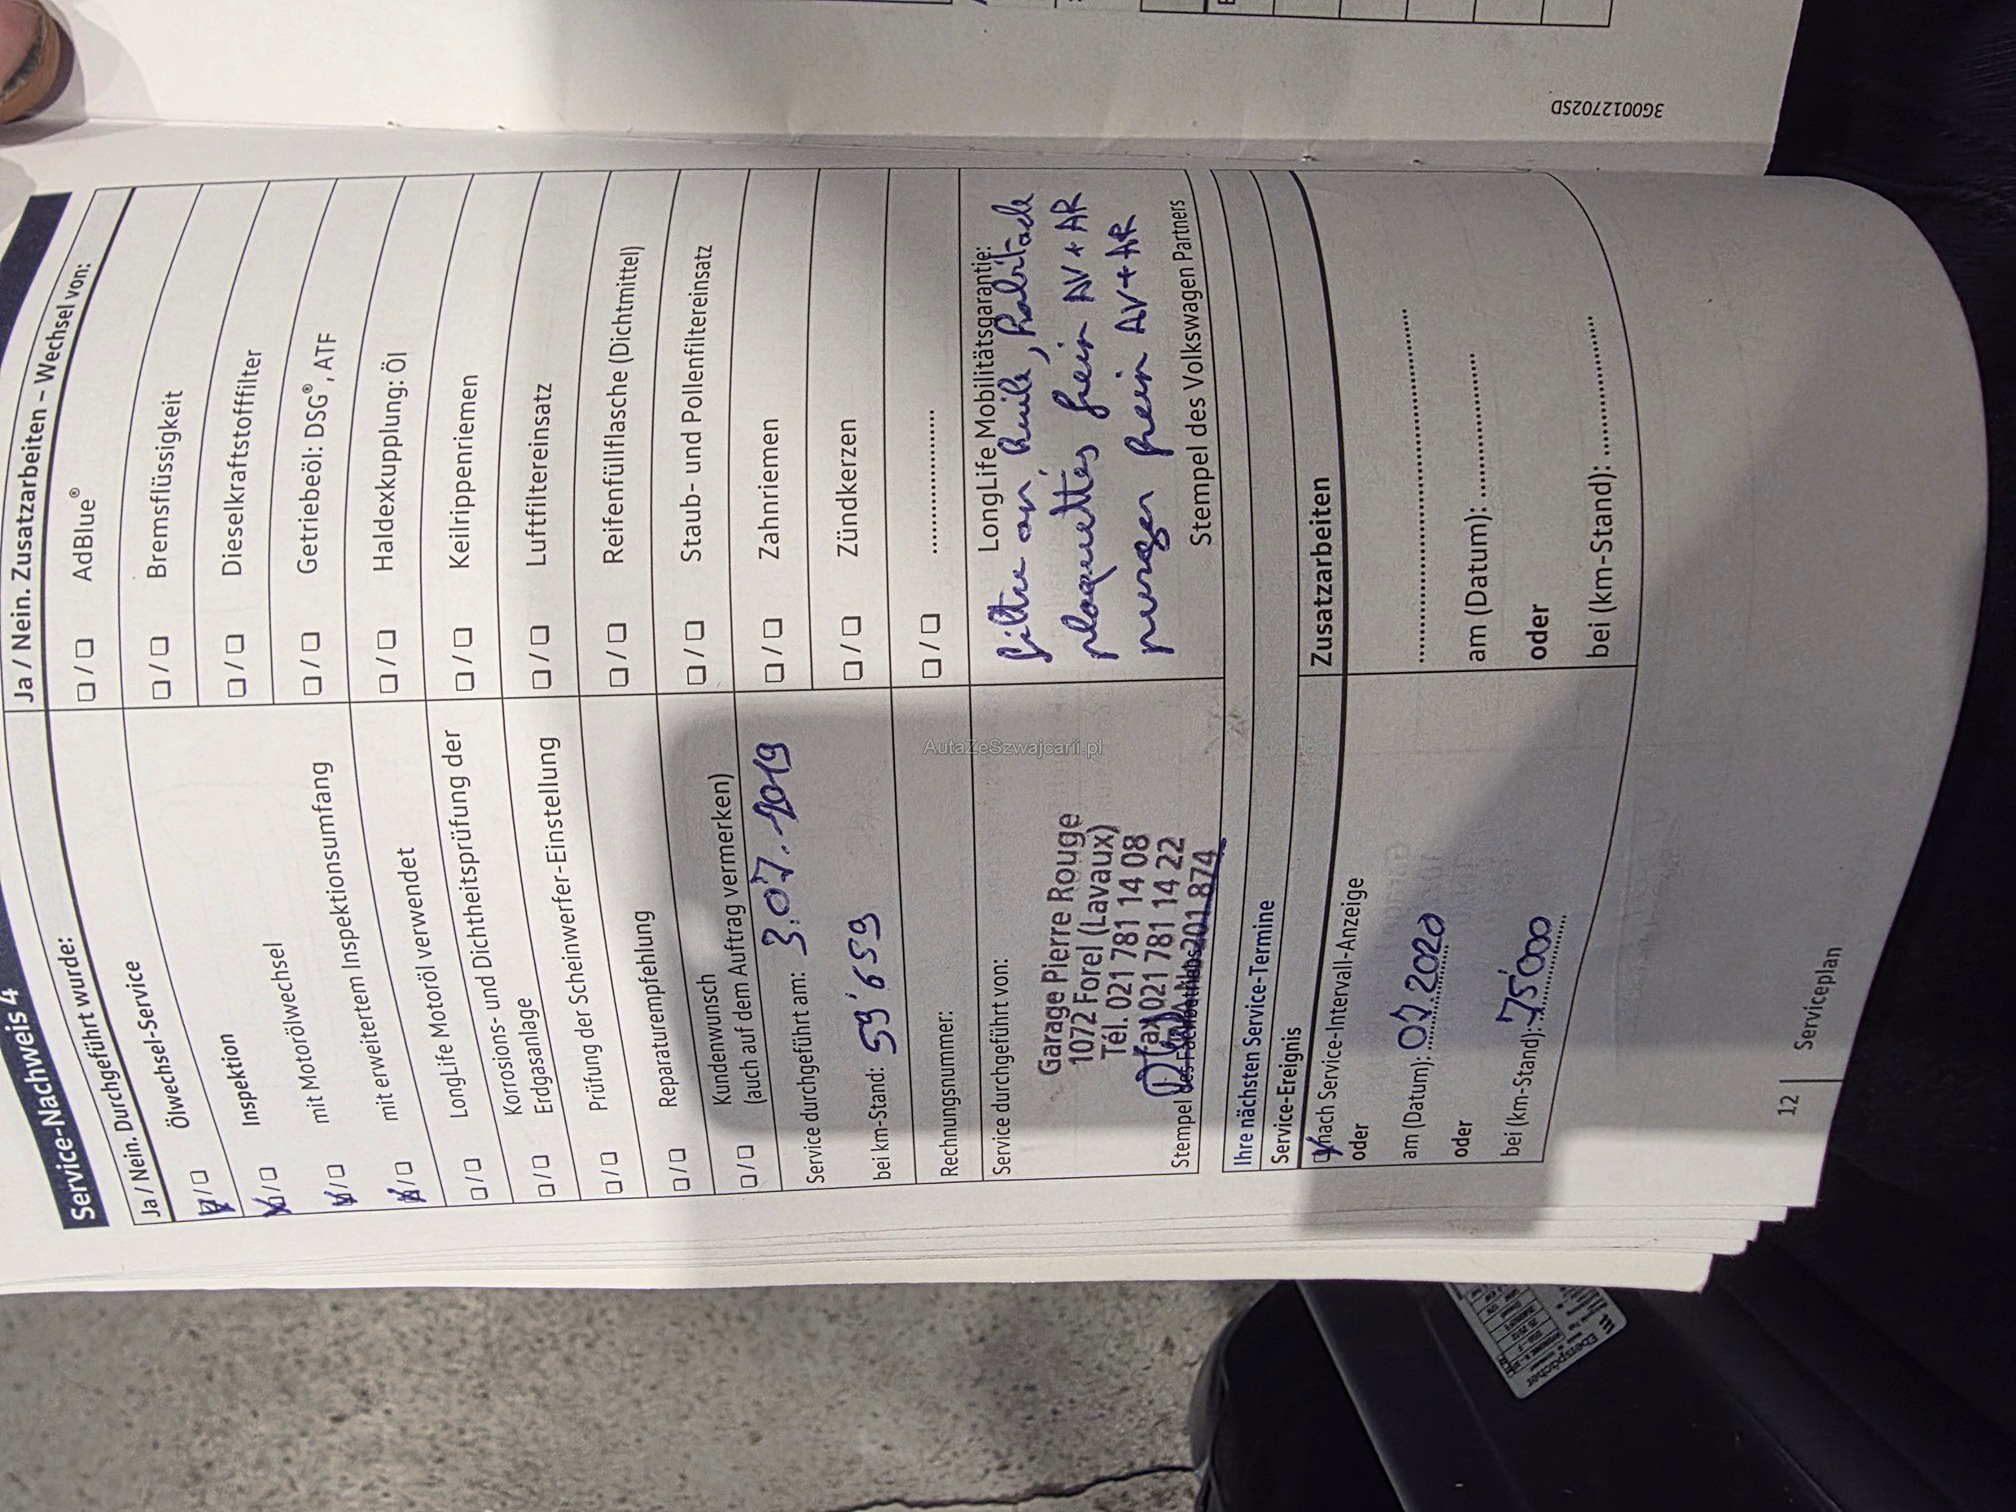 Service-Nachweis 4
Service-Nachweis wurde:
Ja / Nein. Durchgeführt wurde:
Ja / Nein. Durchgeführt
Ölwechsel-Service
Inspektion
mit Motorölwechsel
mit erweitertem Inspektionsumfang
LongLife Motoröl verwendet
Korrosions- und Dichtheitsprüfung der
Erdgasanlage
Prüfung der Scheinwerfer-Einstellung
Reparaturempfehlung
Kundenwunsch
(auch auf dem Auftrag vermerken)
Service durchgeführt am: 3.07.2019
bei km-Stand: 59'659
Rechnungsnummer:
Service durchgeführt von:
Garage Pierre Rouge
1072 Forel (Lavaux)
Tél. 021 781 14 08
Fax 021 781 14 22
201 874
Stempel des Fachbetriebs
Ja / Nein. Zusatzarbeiten – Wechsel von:
AdBlue®
Bremsflüssigkeit
Dieselkraftstofffilter
Getriebeöl: DSG®, ATF
Haldexkupplung: Öl
Keilrippenriemen
Luftfiltereinsatz
Reifenfüllflasche (Dichtmittel)
Staub- und Pollenfiltereinsatz
Zahnriemen
Zündkerzen
LongLife Mobilitätsgarantie:
filtre an huile, habitacle
plaquettes frein AV + AR
purger frein AV + AR
Stempel des Volkswagen Partners
Ihre nächsten Service-Termine
Service-Ereignis
nach Service-Intervall-Anzeige
oder
am (Datum): 07.2020
oder
bei (km-Stand): 75'000
Zusatzarbeiten
am (Datum):
oder
bei (km-Stand):
12 | Serviceplan
3G0012702SD
AutaZeSzwajcarii.pl
Eberspächer